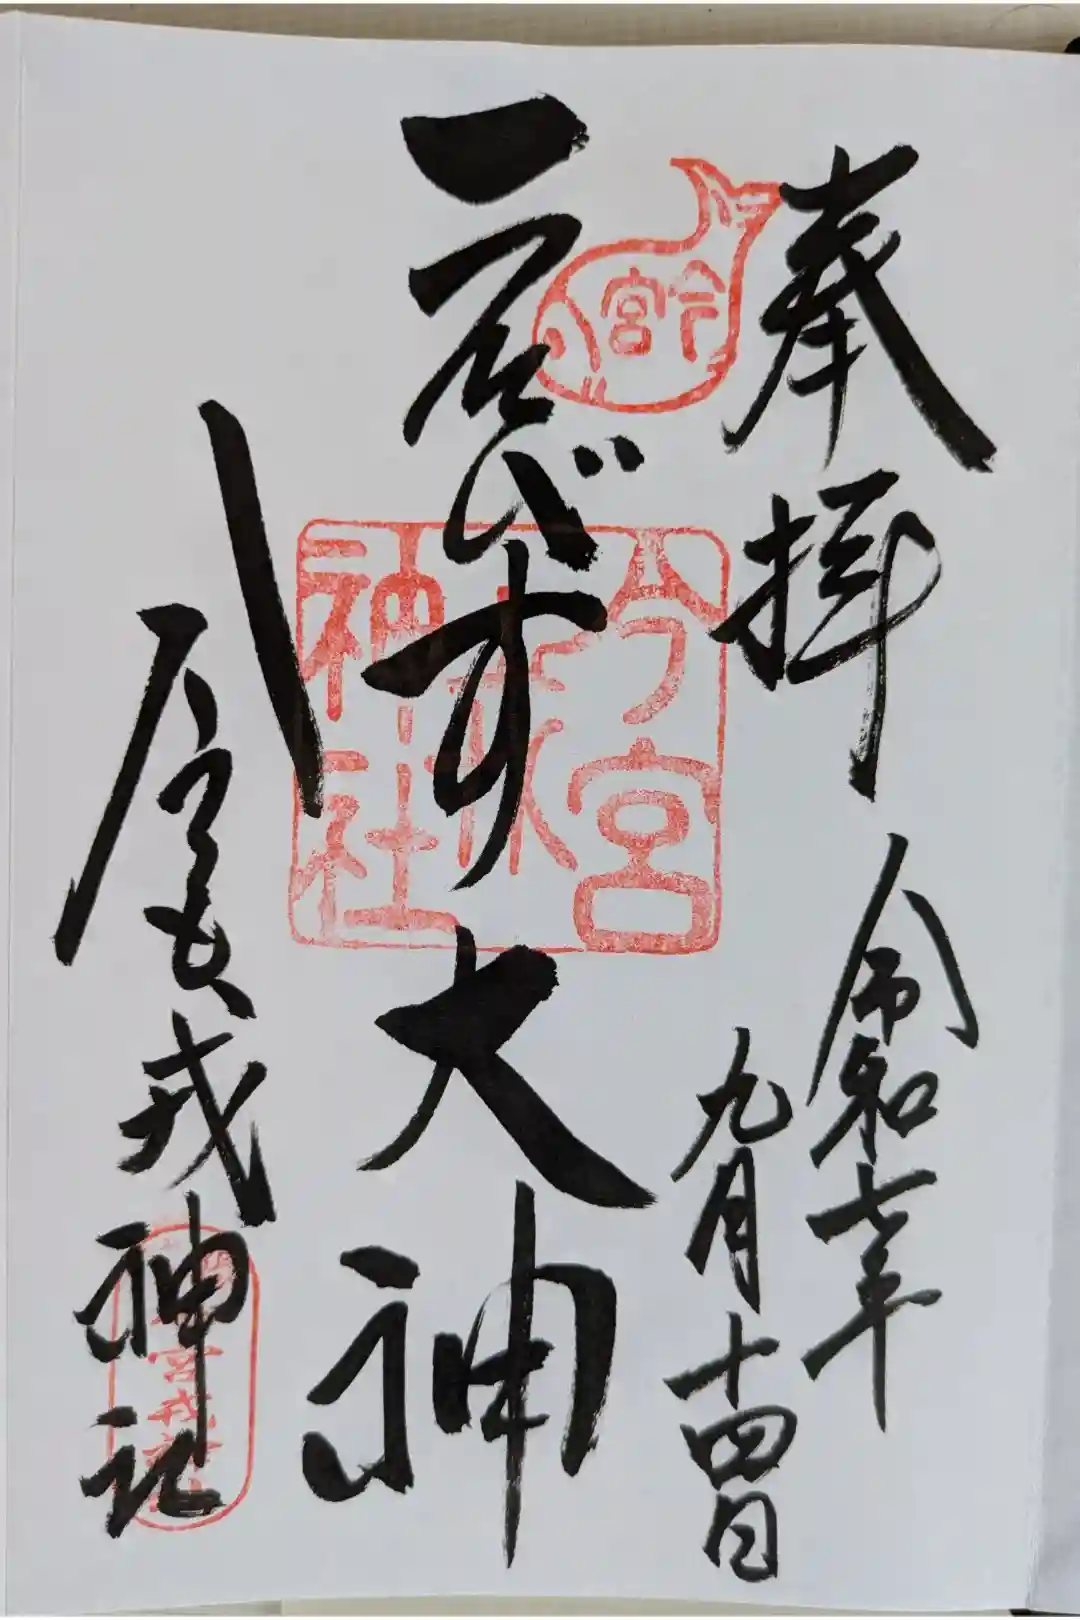 奉拝
令和七年
九月十四日
今宮
えびす大神
今宮戎神社
今宮戎神社